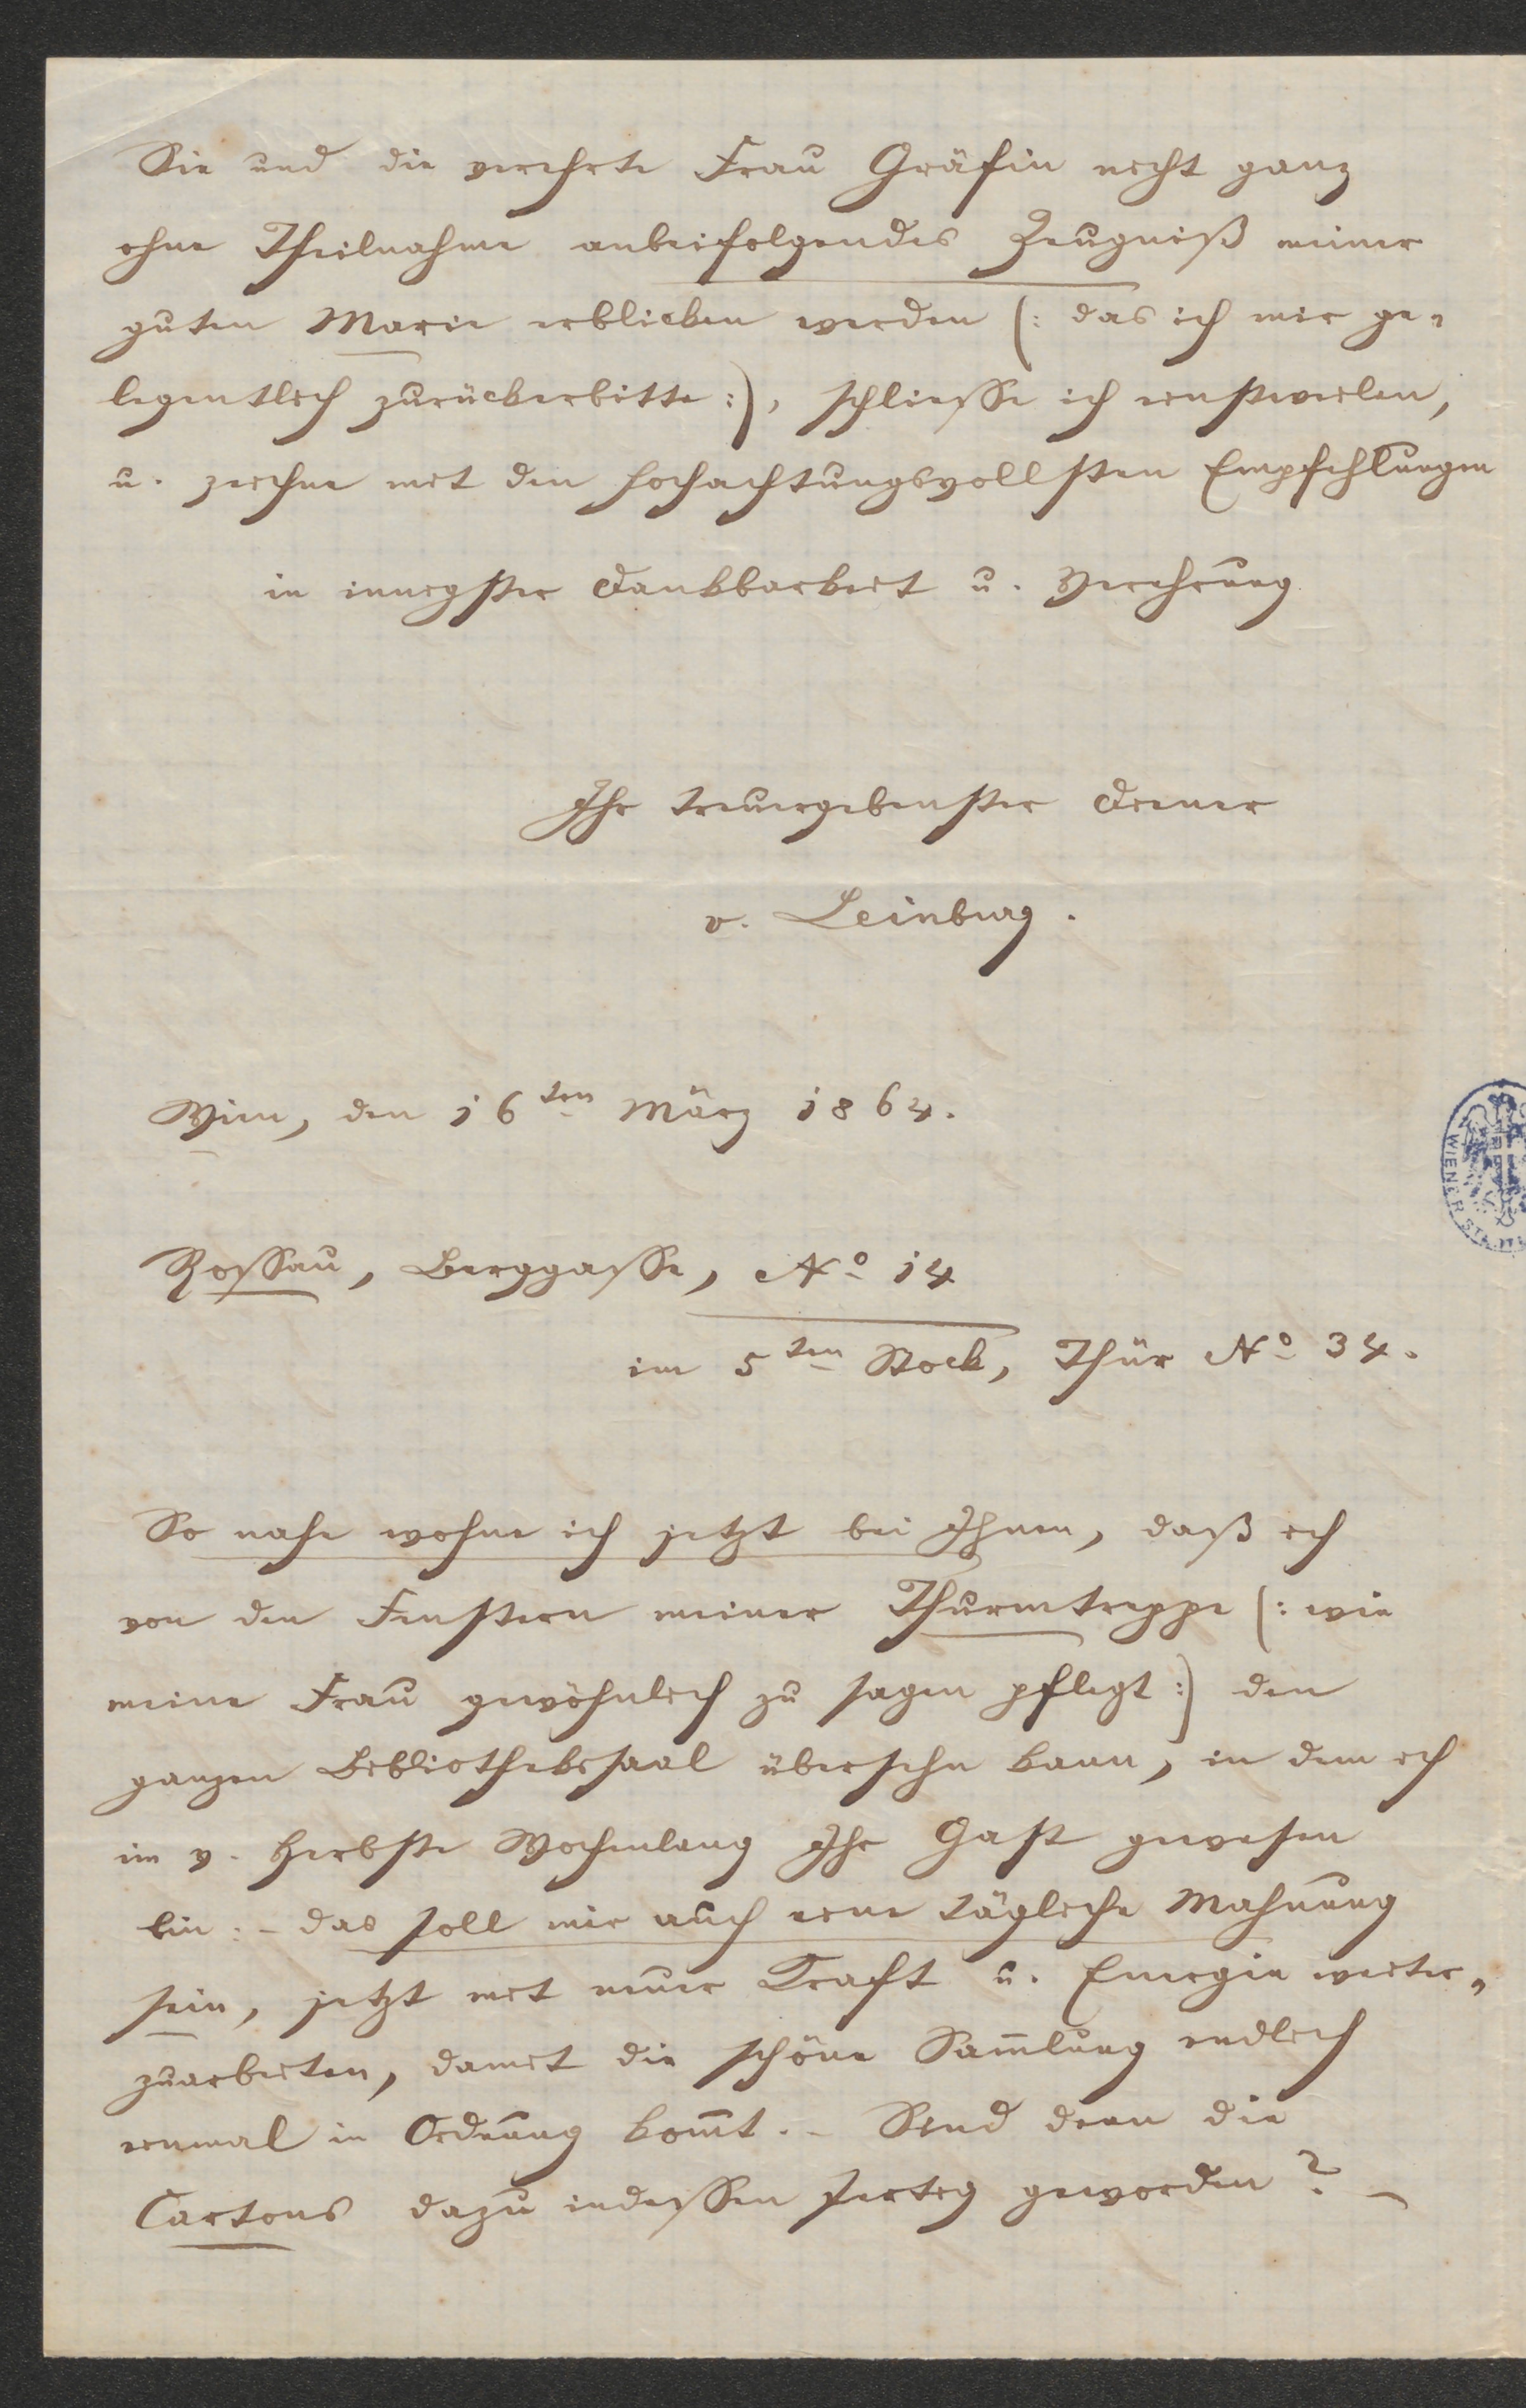 Sie und die verehrte Frau Gräfin nicht ganz
ohne Theilnahme anbeifolgendes Zeugniß meiner
guten Marie erblicken werden (: das ich mir ge-
legentlich zurückerbitte :), schliesse ich einstweilen,
u. zeichne mit den hochachtungsvollsten Empfehlungen
in innigster Dankbarkeit u. Verehrung
Ihr treuergebenster Diener
v. Leinburg.
Wien, den 16ten März 1864.
Rossau, Berggasse, No 14
im 5ten Stock, Thür No 34.
So nahe wohne ich jetzt bei Ihnen, daß ich
von den Fenstern meiner Thurmtreppe (: wie
meine Frau gewöhnlich zu sagen pflegt :) den
ganzen Bibliotheksaal übersehn kann, in dem ich
im v. Herbste Wochenlang Ihr Gast gewesen
bin: – das soll mir auch eine tägliche Mahnung
sein, jetzt mit neuer Kraft u. Energie weiter-
zuarbeiten, damit die schöne Sam̄lung endlich
einmal in Ordnung kom̄t. – Sind denn die
Cartons dazu indessen fertig geworden? –
WIENER STADT